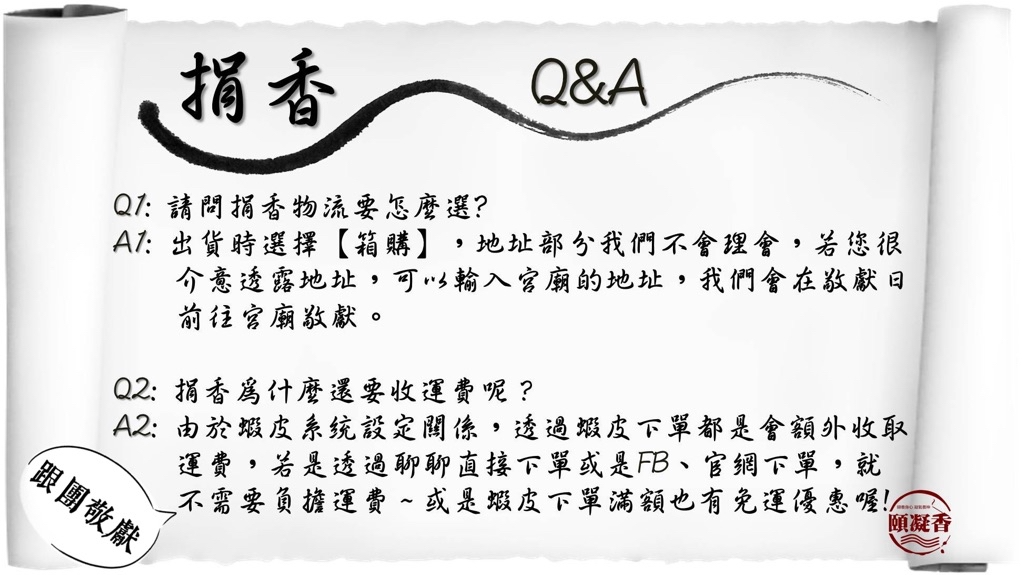 捐香 Q&A
Q1: 請問捐香物流要怎麼選?
A1: 出貨時選擇【箱購】，地址部分我們不會理會，若您很
介意透露地址，可以輸入宮廟的地址，我們會在敬獻日
前往宮廟敬獻。
Q2: 捐香為什麼還要收運費呢？
A2: 由於蝦皮系統設定關係，透過蝦皮下單都是會額外收取
運費，若是透過聊聊直接下單或是FB、官網下單，就
不需要負擔運費～或是蝦皮下單滿額也有免運優惠喔!
跟團敬獻
頤凝香